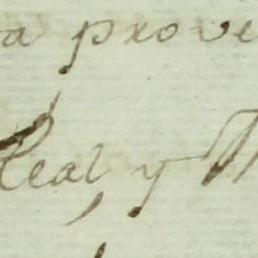 a prove
Real, y